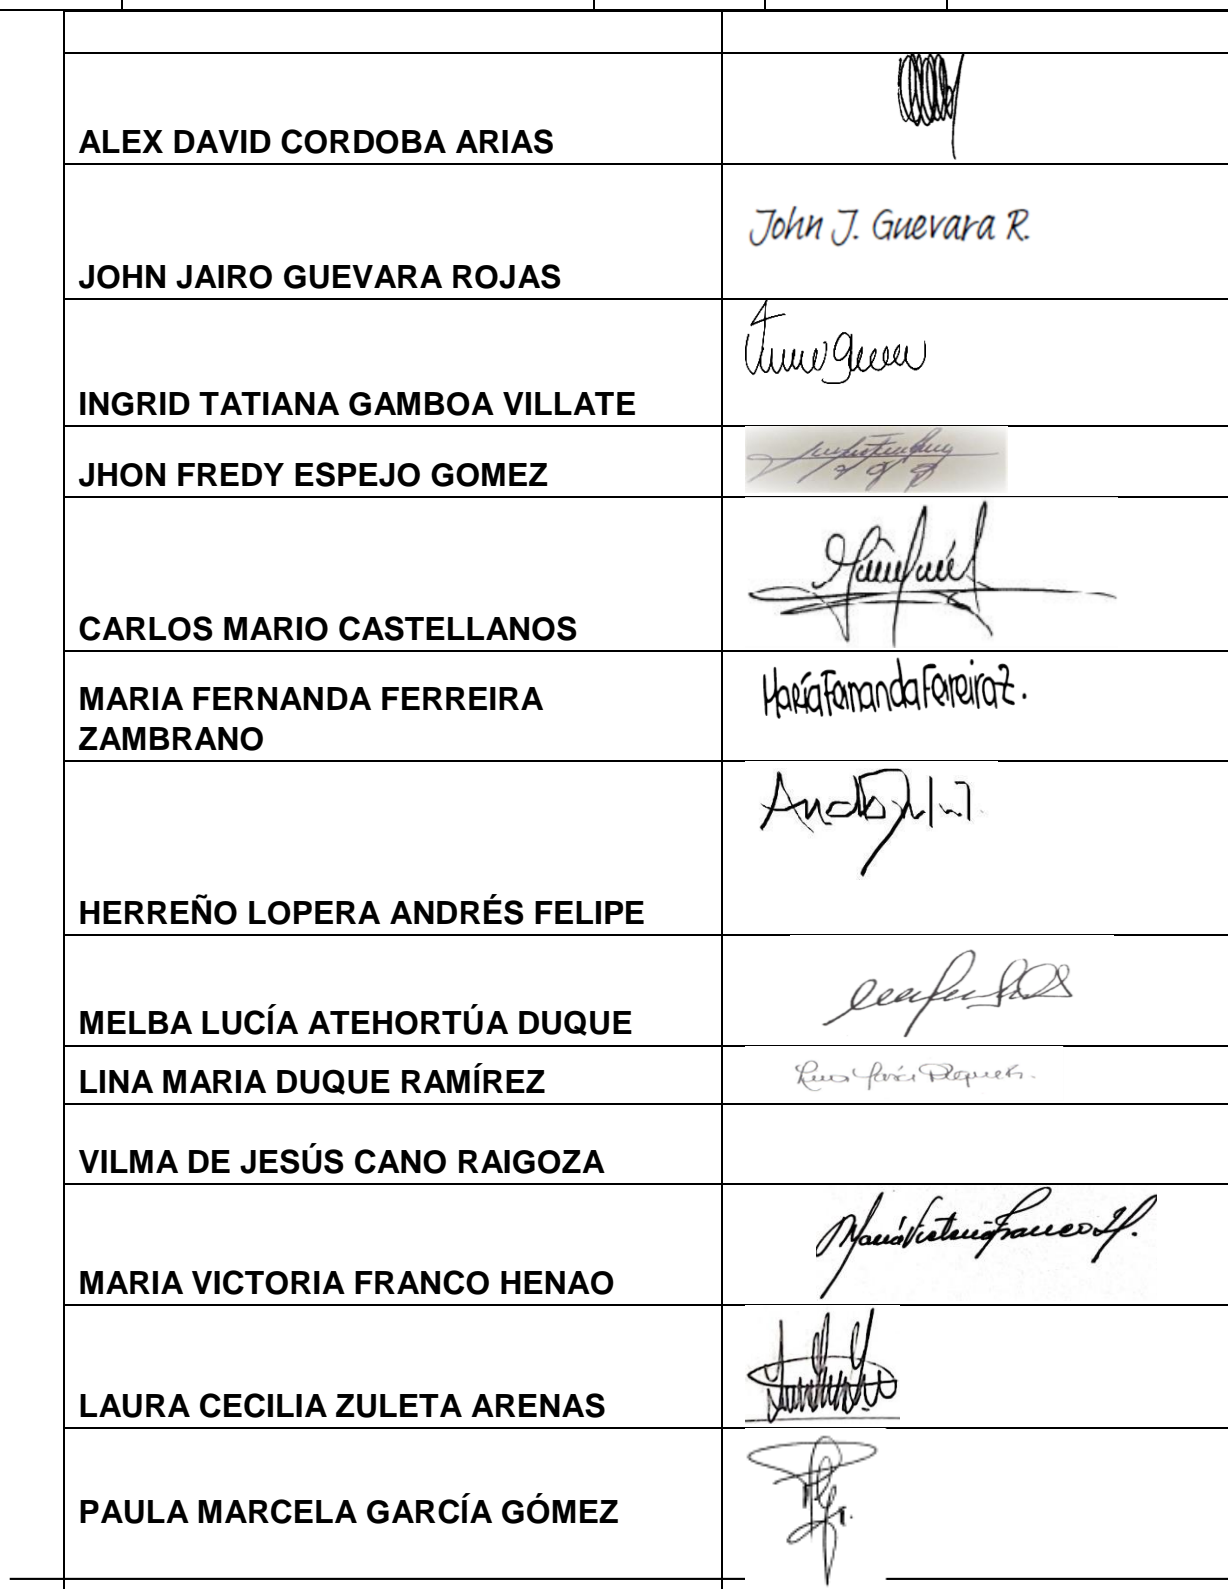 ALEX DAVID CORDOBA ARIAS
John J. Guevara R.
JOHN JAIRO GUEVARA ROJAS
INGRID TATIANA GAMBOA VILLATE
JHON FREDY ESPEJO GOMEZ
CARLOS MARIO CASTELLANOS
MARIA FERNANDA FERREIRA
ZAMBRANO
María Fernanda Ferreira Z.
HERREÑO LOPERA ANDRÉS FELIPE
MELBA LUCÍA ATEHORTÚA DUQUE
LINA MARIA DUQUE RAMÍREZ
VILMA DE JESÚS CANO RAIGOZA
María Victoria Franco H.
MARIA VICTORIA FRANCO HENAO
LAURA CECILIA ZULETA ARENAS
PAULA MARCELA GARCÍA GÓMEZ